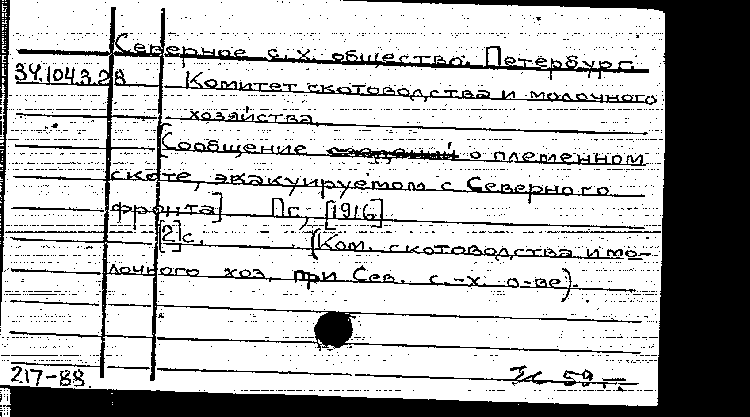 Северное с.х. общество. Петербург.
34.104.3.28 Комитет скотоводства и молочного
хозяйства.
[Сообщение сведений о племенном
скоте, эвакуируемом с Северного
фронта] Пг, [1916]
[2]с. (Ком. скотоводства и мо-
лочного хоз. при Сев. с.-х. о-ве).
217-88. 59 г.